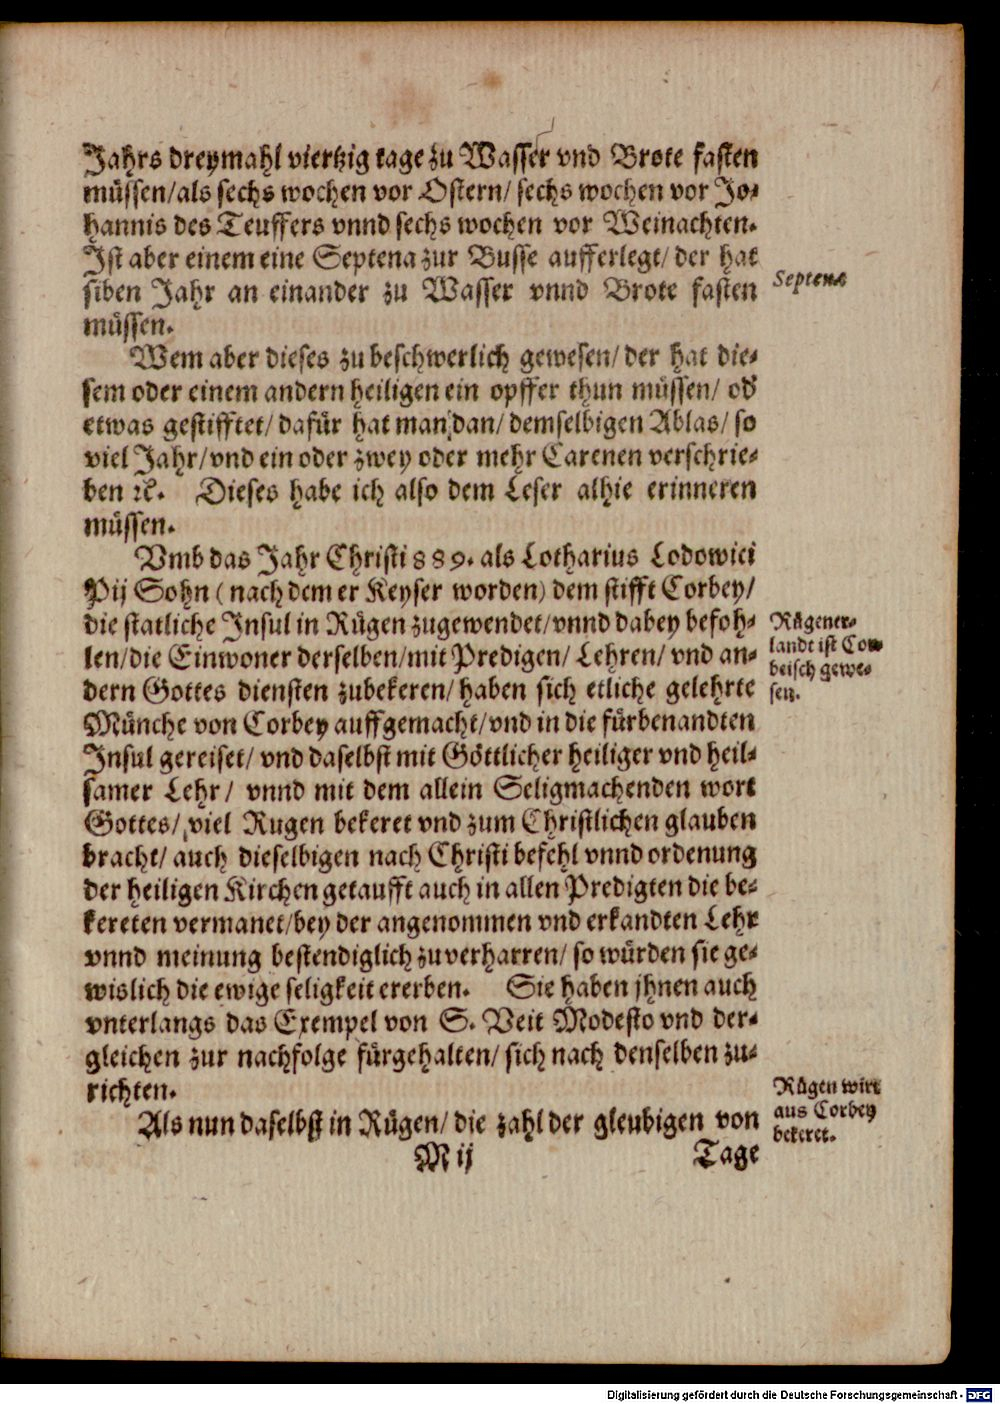 Jahrs dreymahl viertzig tage zu Wasser vnd Brote fasten
müssen/als sechs wochen vor Ostern/ sechs wochen vor Jo-
hannis des Teuffers vnnd sechs wochen vor Weinachten.
Ist aber einem eine Septena zur Busse aufferlegt/ der hat
siben Jahr an einander zu Wasser vnnd Brote fasten
müssen.
Septena
Wem aber dieses zu beschwerlich gewesen/ der hat die-
sem oder einem andern heiligen ein opffer thun müssen/ od'
etwas gestifftet/ dafür hat man dan/ demselbigen Ablas/ so
viel Jahr/vnd ein oder zwey oder mehr Carenen verschrie-
ben ꝛc. Dieses habe ich also dem Leser alhie erinneren
müssen.
Vmb das Jahr Christi 889. als Lotharius Lodowici
Pij Sohn ( nach dem er Keyser worden) dem stifft Corbey/
die statliche Insul in Rügen zugewendet/vnnd dabey befoh-
len/die Einwoner derselben/mit Predigen/ Lehren/ vnd an-
dern Gottes diensten zubekeren/ haben sich etliche gelehrte
Münche von Corbey auffgemacht/vnd in die fürbenandten
Insul gereiset/ vnd daselbst mit Göttlicher heiliger vnd heil-
samer Lehr/ vnnd mit dem allein Seligmachenden wort
Gottes/ viel Rugen bekeret vnd zum Christlichen glauben
bracht/ auch dieselbigen nach Christi befehl vnnd ordenung
der heiligen Kirchen getaufft auch in allen Predigten die be-
kereten vermanet/bey der angenommen vnd erkandten Lehr
vnnd meinung bestendiglich zuverharren/ so würden sie ge-
wislich die ewige seligkeit ererben. Sie haben jhnen auch
vnterlangs das Exempel von S. Veit Modesto vnd der-
gleichen zur nachfolge fürgehalten/ sich nach denselben zu-
richten.
Rügener-
landt ist Cor-
beisch gewe-
sen.
Als nun daselbst in Rügen/ die zahl der gleubigen von
Rügen wirt
aus Corbey
bekeret.
M ij
Tage
Digitalisierung gefördert durch die Deutsche Forschungsgemeinschaft - DFG